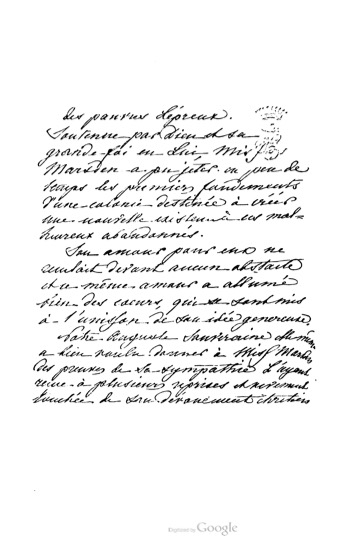 des pauvres lépreux.
Soutenue par Dieu et sa
grande foi en Lui Miss
Marsden a pu jeter en peu de
temps les premiers fondements
d'une colonie destinée à créer
une nouvelle existence à ces mal-
heureux abandonnés.
Son amour pour eux ne
reculait devant aucun obstacle
et ce même amour a allumé
bien des cœurs, qui se sont mis
à l'unisson de son idée genereuse
Notre Auguste Souveraine Elle même
a bien voulu donner à Miss Marsden
des preuves de Sa sympathie L'ayant
reçue à plusieurs reprises et vivement
touchée de son dévouement chrétien
Digitized by Google